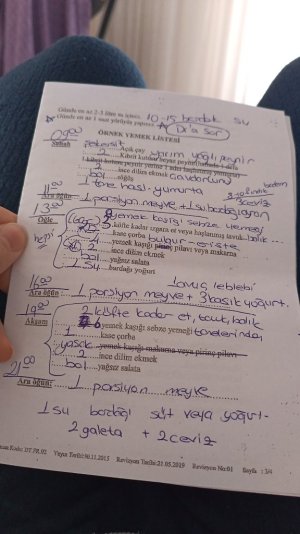 Günde en az 2-3 litre su içiniz. 10-15 bardak su
Günde en az 1 saat yürüyüş yapınız. Dr'a Sor
ÖRNEK YEMEK LİSTESİ
09:00
Sabah şekersiz
2 Açık çay
Kibrit kutusu beyaz peynir yarım yağlı peynir
bol ince dilim ekmek (çavdarlı)
söğüş
1 tane haşl. yumurta
11:00
Ara öğün 1 porsiyon meyve + 1 su bardağı ayran
badem
3 ceviz
13:00
Öğle yemek kaşığı sebze yemeği
köfte kadar ızgara et veya haşlanmış tavuk balık
kase çorba bulgur - erişte
yemek kaşığı pirinç pilavı veya makarna
2 ince dilim ekmek
bol yağsız salata
1 su bardağı yoğurt
hepsi
16:00
Ara öğün 1 porsiyon meyve + 3 kaşık yoğurt.
1 avuç leblebi
19:00
Akşam 2 köfte kadar et, tavuk, balık
6 yemek kaşığı sebze yemeği
1 kase çorba
yasak yemek kaşığı makarna veya pirinç pilavı
2 ince dilim ekmek
bol yağsız salata
21:00
Ara öğün: 1 porsiyon meyve
1 su bardağı süt veya yoğurt.
2 galeta + 2 ceviz
Kodu: DT.PR.02 Yayın Tarihi:30.11.2015 Revizyon Tarihi:21.05.2019 Revizyon No:01 Sayfa : 3/4